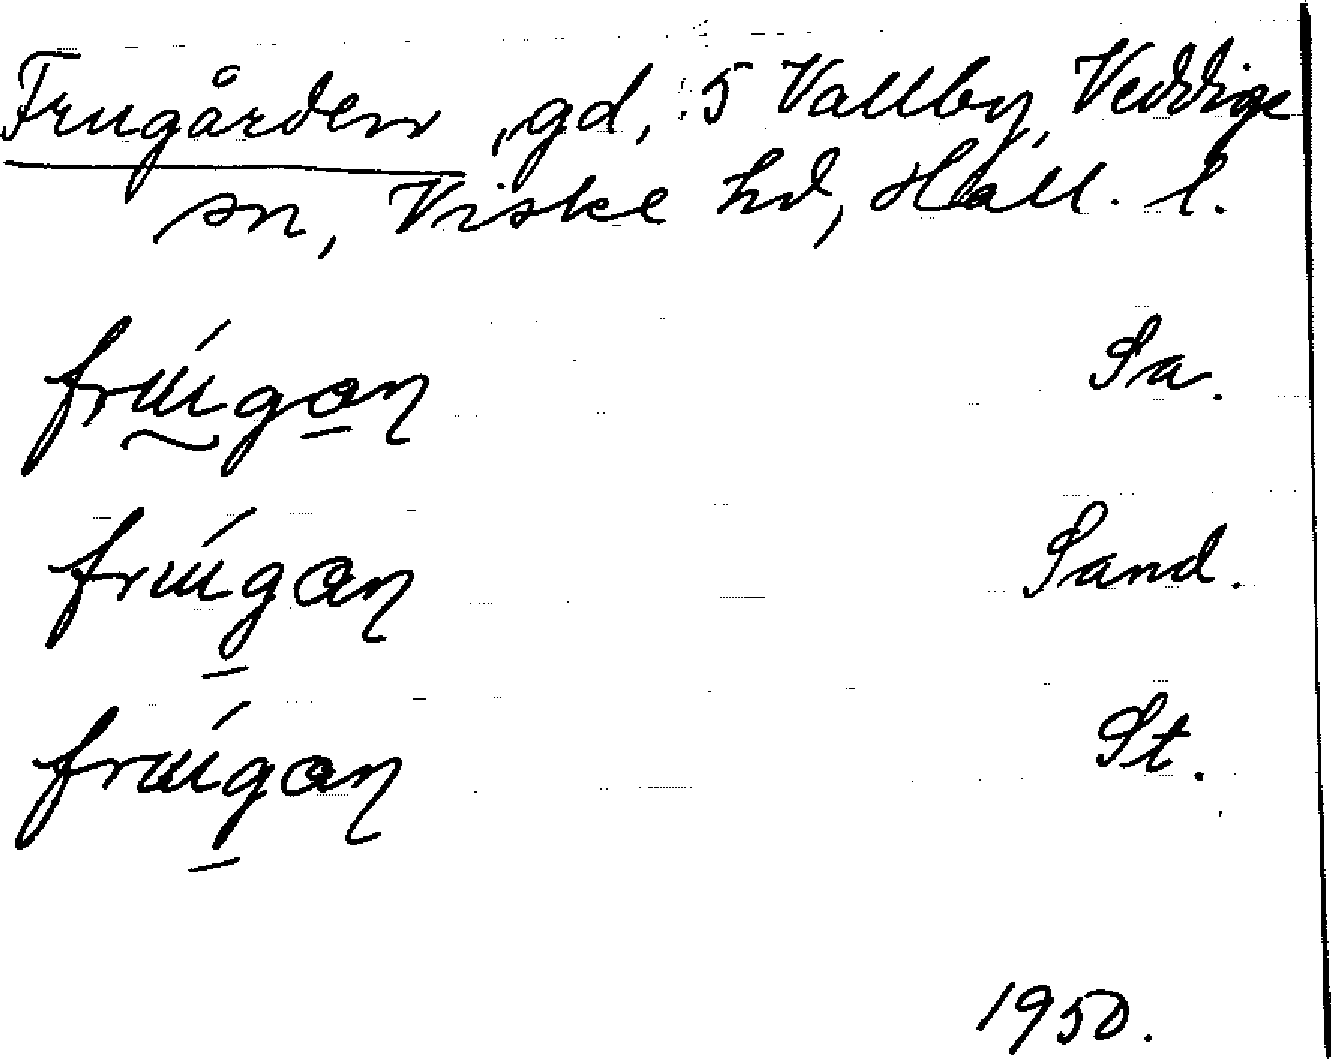 Frugården, gd, 5 Vallby, Veddige
sn, Viske hd, Hall. l.
frúgan Sa.
frúgan Sand.
frúgan St.
1950.